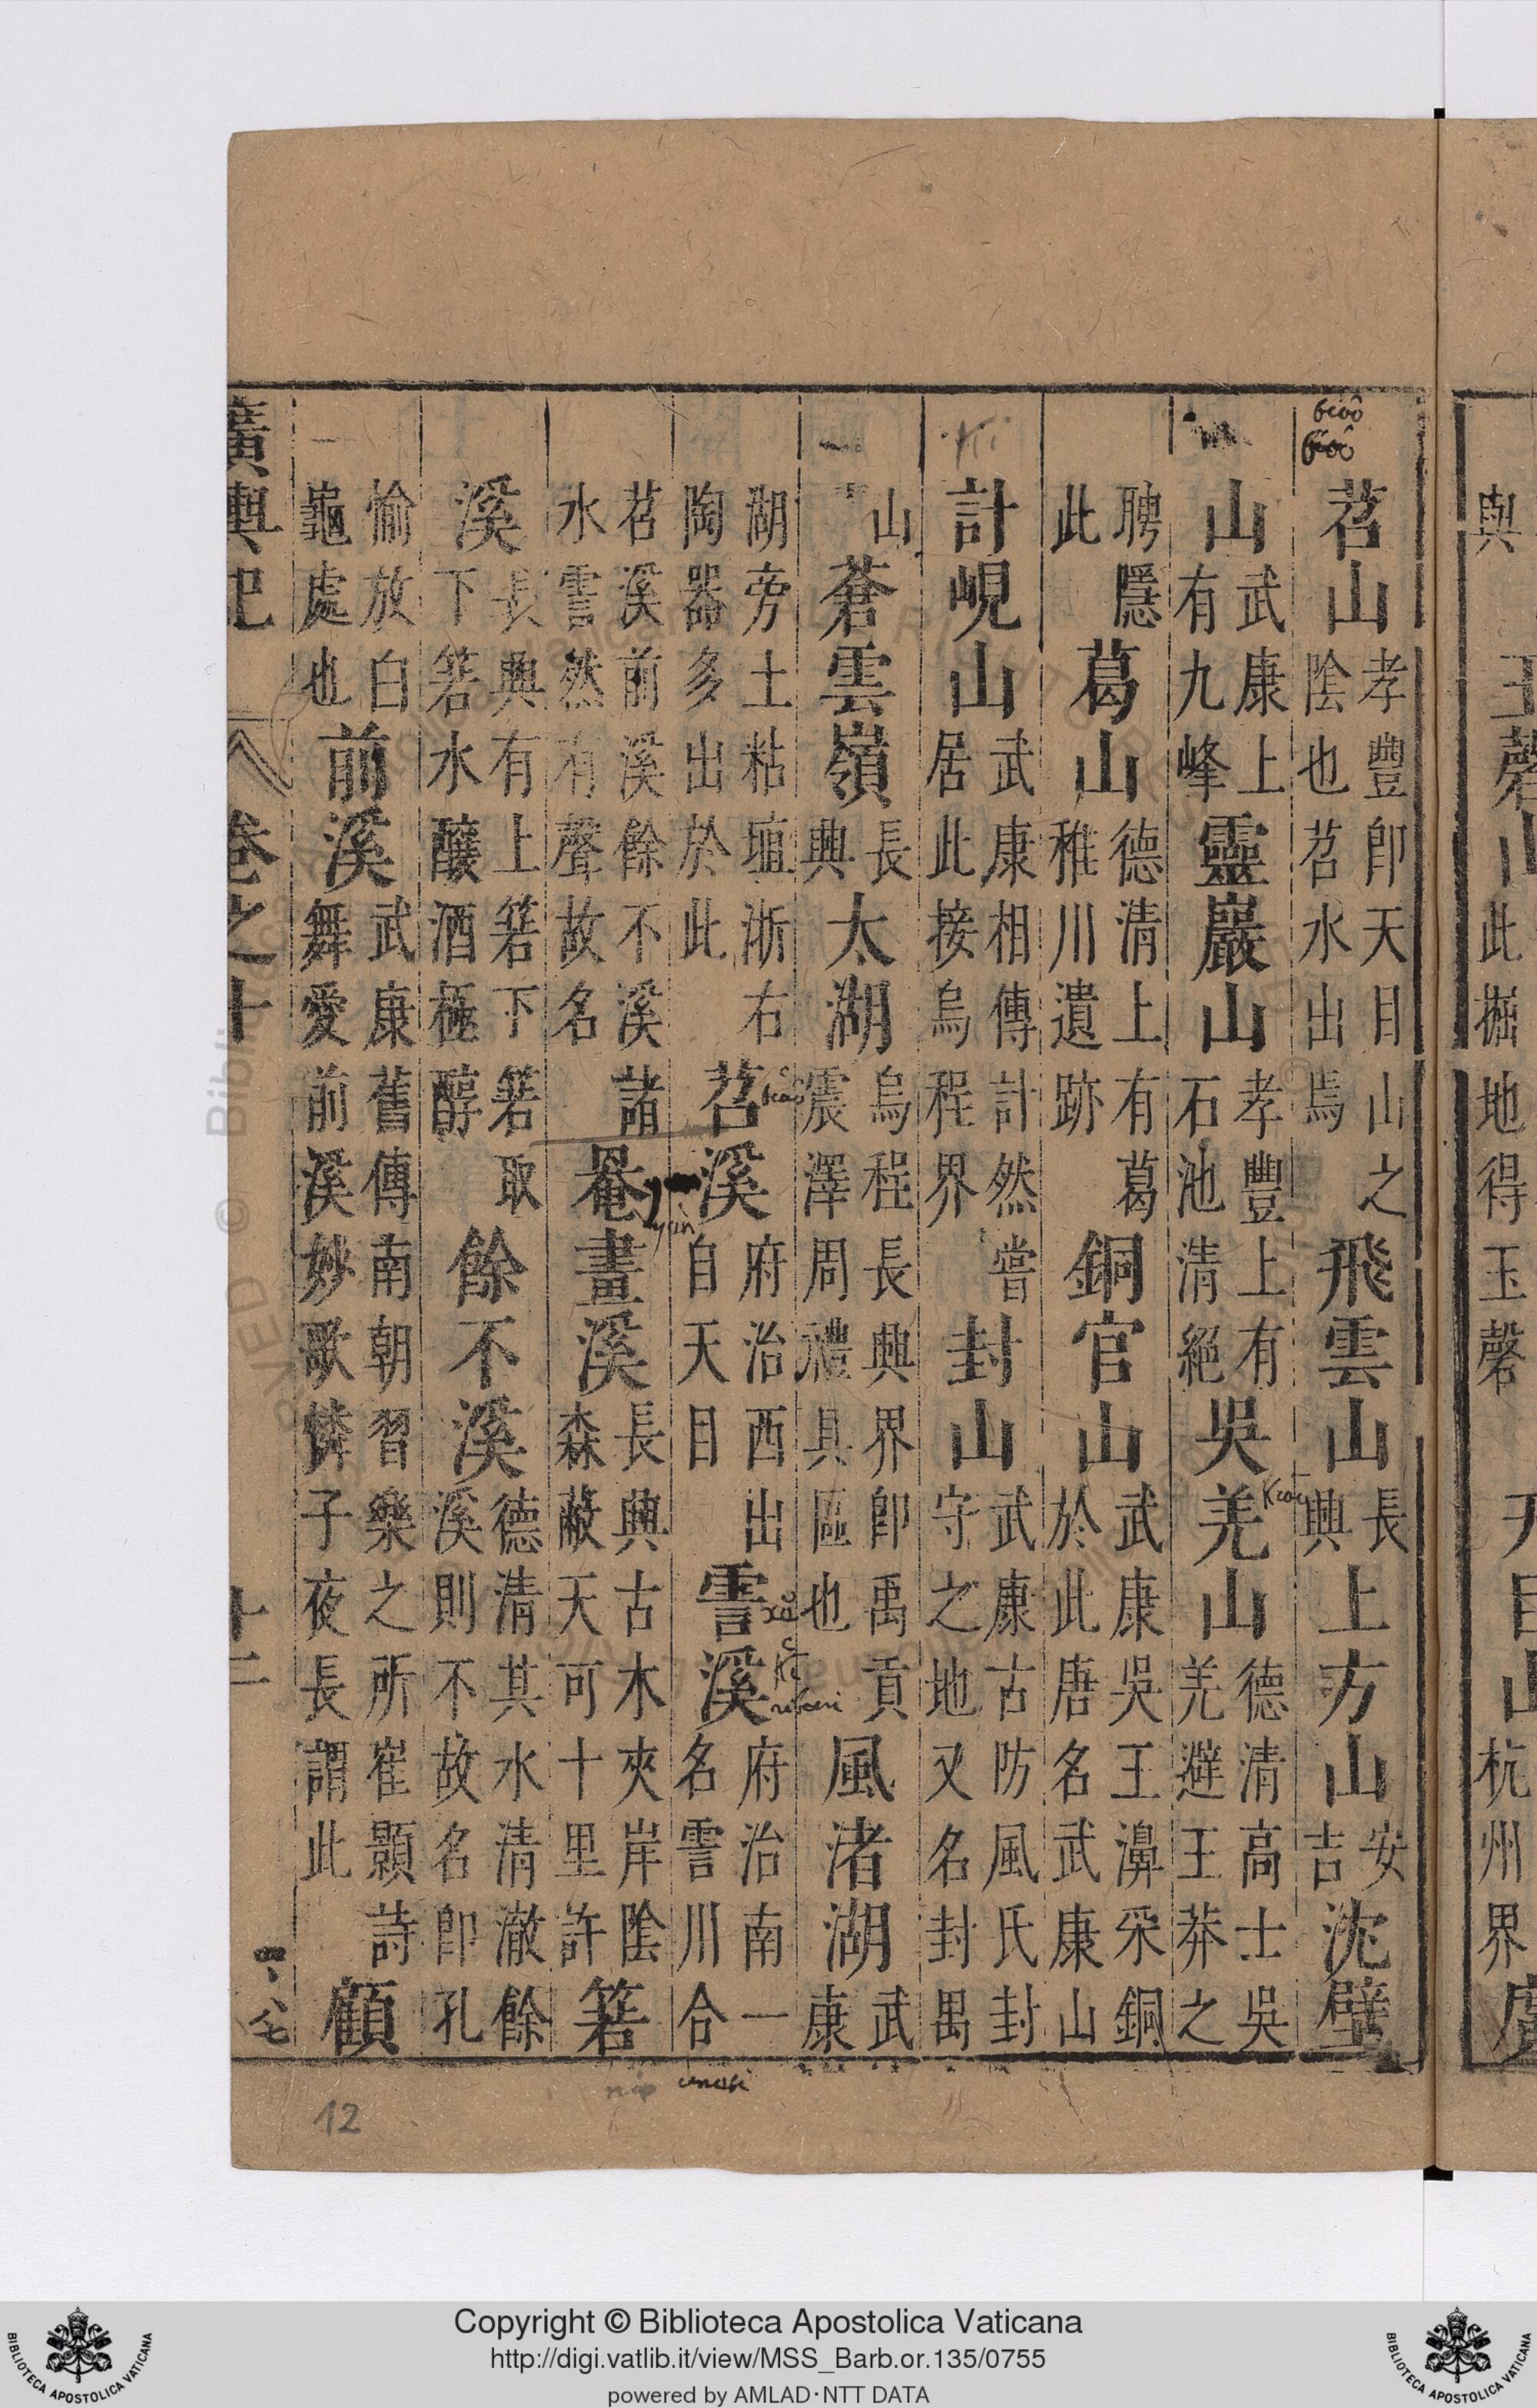 苕山孝豐即天目山之陰也苕水出焉飛雲山長興上方山安吉沈壁
山武康上有九峰靈巖山孝豐上有石池清絕吳羌山德清高士吳羌避王莽之
聘隱此葛山德清上有葛稚川遺跡銅官山武康吳王濞采銅於此唐名武康山
計峴山武康相傳計然嘗居此接烏程界封山武康古防風氏封守之地又名封禺
山蒼雲嶺長興太湖烏程長興界即禹貢震澤周禮具區也風渚湖武康
湖旁土粘埴浙右陶器多出於此苕溪府治西出自天目霅溪府治南一名霅川合
苕溪前溪餘不溪諸水霅然有聲故名罨畫溪長興古木夾岸陰森蔽天可十里許箬
溪長興有上箬下箬取下箬水釀酒極醇餘不溪德清其水清澈餘溪則不故名即孔
愉放白龜處也前溪武康舊傳南朝習樂之所崔顥詩舞愛前溪妙歌憐子夜長謂此顧
廣輿記
卷之十
十二
與
玉磬山此掘地得玉磬
天目山杭州界
12
Copyright © Biblioteca Apostolica Vaticana
http://digi.vatlib.it/view/MSS_Barb.or.135/0755
powered by AMLAD·NTT DATA
BIBLIOTECA APOSTOLICA VATICANA
BIBLIOTECA APOSTOLICA VATICANA